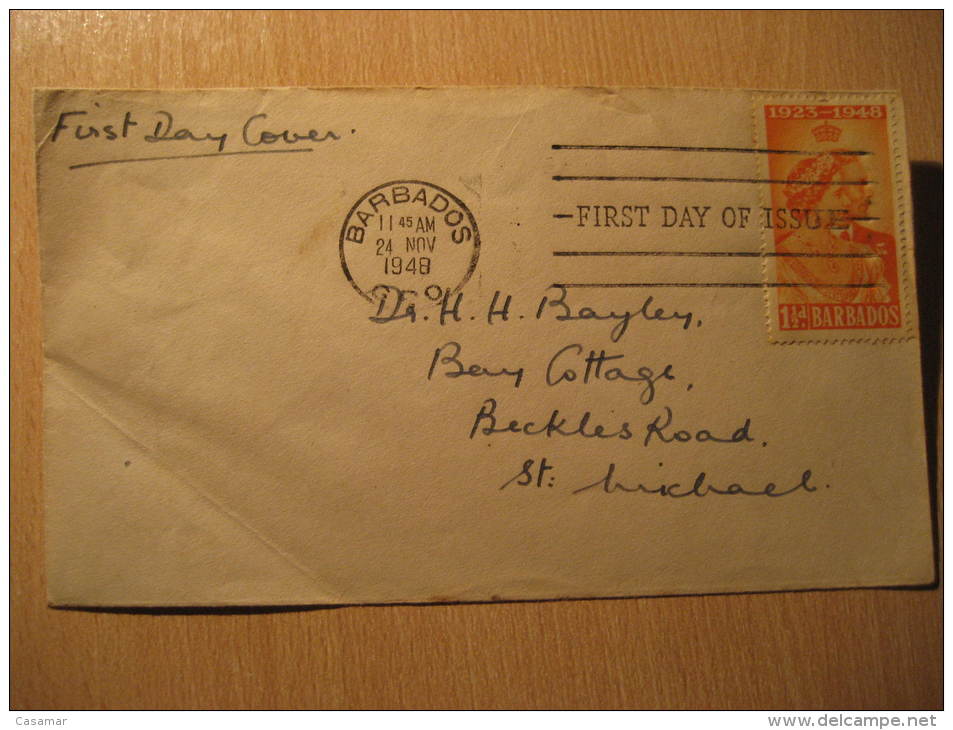 First Day Cover.
1923-1948
BARBADOS
11 45 AM
24 NOV
1948
FIRST DAY OF ISSUE
1½d. BARBADOS
Dr. H. H. Bayley,
Bay Cottage,
Beckles Road.
St: Michael.
Casamar
www.delcampe.net